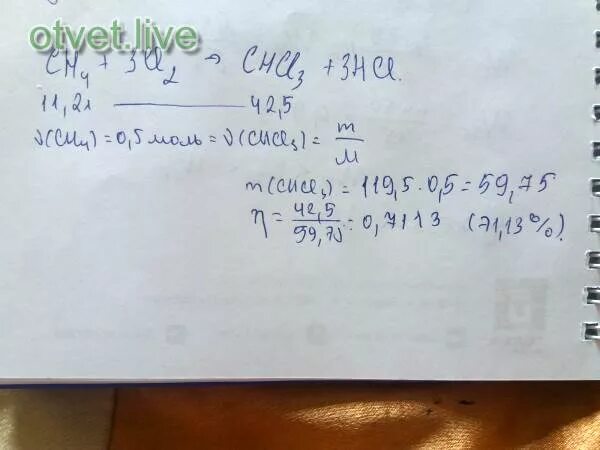 otvet.live
CH₄ + 3Cl₂ → CHCl₃ + 3HCl.
11,2л ——— 42,5
ν(CH₄) = 0,5 моль = ν(CHCl₃) = m/M
m(CHCl₃) = 119,5 · 0,5 = 59,75
η = 42,5/59,75 = 0,7113 (71,13%).